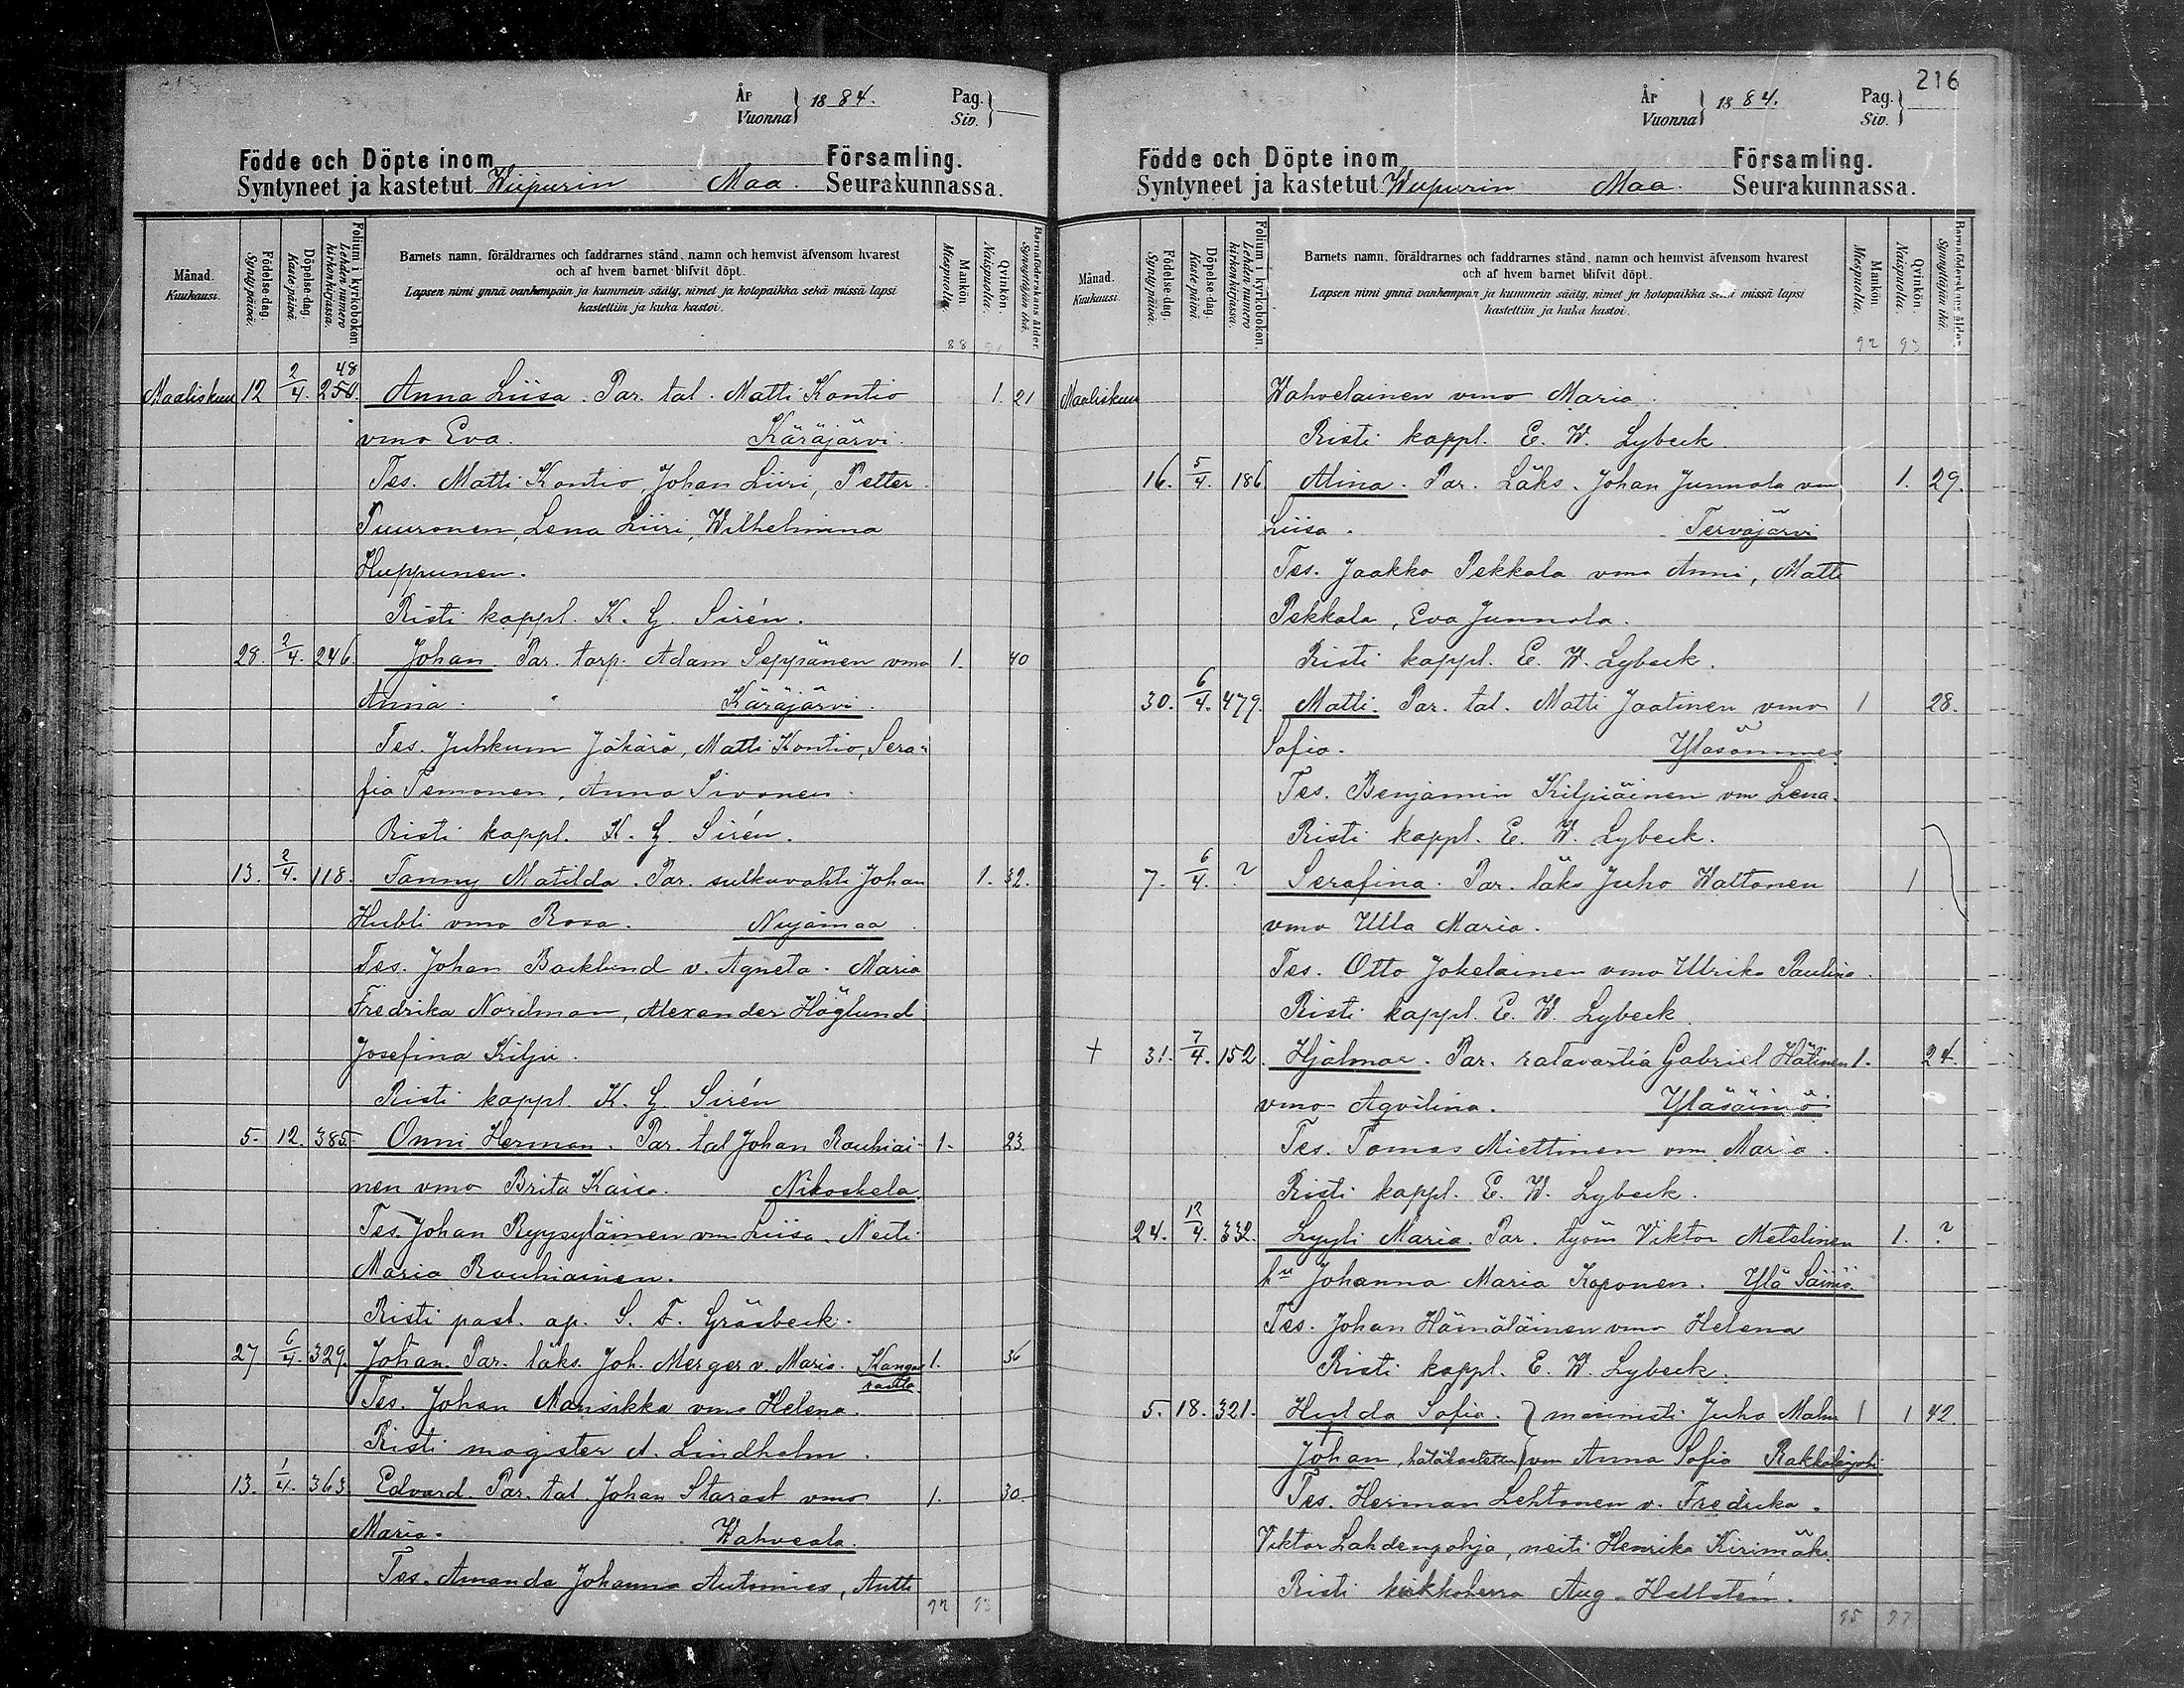 År
Vuonna } 1884. Pag.
Siv. } —
Födde och Döpte inom Församling.
Syntyneet ja kastetut Wiipurin Maa. Seurakunnassa.
Månad.
Kuukausi.
Födelse-dag.
Syntypäivä.
Döpelse-dag.
Kastepäivä.
Folium i kyrkoboken.
Lehden numero kirkonkirjassa.
Barnets namn, föräldrarnes och faddrarnes stånd, namn och hemvist äfvensom hvarest
och af hvem barnet blifvit döpt.
Lapsen nimi ynnä vanhempain ja kummein sääty, nimet ja kotopaikka sekä missä lapsi
kastettiin ja kuka kastoi.
Mankön.
Miespuolia.
Qvinkön.
Naispuolia.
Barnföderskans ålder.
Synnyttäjän ikä.
88
48
Maaliskuu 12 2/4. 250. Anna Liisa. Par. tal. Matti Kontio 1. 21
vmo Eva. Käräjärvi.
Tes. Matti Kontio, Johan Liiri, Petter
Puuronen, Lena Liiri, Wilhelmina
Huppunen.
Risti kappl. K. G. Sirén.
28. 2/4. 246. Johan Par. torp. Adam Seppänen vmo 1. 40
Anna. Käräjärvi.
Tes. Juhkum Jäkärä, Matti Kontio, Sera-
fia Temonen, Anna Sivonen.
Risti kappl. K. G. Sirén.
13. 2/4. 118. Fanny Matilda. Par. sulkuvahti Johan 1. 32.
Hubli vmo Rosa. Nuijamaa
Tes. Johan Backlund v. Agneta. Maria
Fredrika Nordman, Alexander Höglund
Josefina Kilpi.
Risti kappl K. G. Sirén
5. 12. 385. Onni Herman. Par. tal Johan Rouhiai- 1. 23.
nen vmo Brita Kaisa. Nikoskela.
Tes. Johan Ryypyläinen vm Liisa. Neiti
Maria Rouhiainen.
Risti past. ap. S. F. Gräsbeck.
27 6/4. 329. Johan. Par. läks. Joh. Merger v. Maria. Kangas 1. 36
rantta
Tes. Johan Mansikka vmo Helena.
Risti magister A. Lindholm.
13. 1/4. 363 Edvard. Par. tal. Johan Starast vmo 1. 30.
Maria. Wahvaala.
Tes. Amanda Johanna Autonies, Antti
92 93
216
År
Vuonna } 1884. Pag.
Siv. }
Födde och Döpte inom Församling.
Syntyneet ja kastetut Wiipurin Maa. Seurakunnassa.
Månad.
Kuukausi.
Födelse-dag.
Syntypäivä.
Döpelse-dag.
Kastepäivä.
Folium i kyrkoboken.
Lehden numero kirkonkirjassa.
Barnets namn, föräldrarnes och faddrarnes stånd, namn och hemvist äfvensom hvarest
och af hvem barnet blifvit döpt.
Lapsen nimi ynnä vanhempain ja kummein sääty, nimet ja kotopaikka sekä missä lapsi
kastettiin ja kuka kastoi.
Mankön.
Miespuolia.
Qvinkön.
Naispuolia.
Barnföderskans ålder.
Synnyttäjän ikä.
92 93
Maaliskuu Wahvelainen vmo Maria.
Risti kappl. E. W. Lybeck
16. 5/4. 186. Alina. Par. Läks. Johan Junnola vm 1. 29.
Liisa. Tervajärvi
Tes. Jaakko Pekkala vmo Anni, Matti
Pekkala, Eva Junnola.
Risti kappl. E. W. Lybeck.
30. 6/4. 479. Matti. Par. tal. Matti Jaatinen vmo 1 28.
Sofia. Yläsommes
Tes. Benjamin Kilpiäinen vm Lena.
Risti kappl. E. W. Lybeck.
7. 6/4. ? Serafina. Par. läks Juho Waltonen 1
vmo Ulla Maria.
Tes. Otto Jokelainen vmo Ulrika Paulina.
Risti kappl. E. W. Lybeck
+ 31. 7/4. 152. Hjalmar. Par. ratavartia Gabriel Hätinen 1. 24.
vmo Aqvilina. Yläsäiniö.
Tes. Tomas Miettinen vm Maria.
Risti kappl. E. W. Lybeck.
24. 12/4. 332. Lyyli Maria. Par. työm Viktor Metelinen 1. ?
hu Johanna Maria Koponen. Ylä Säiniö.
Tes. Johan Hämäläinen vmo Helena
Risti kappl. E. W. Lybeck.
5. 18. 321. Hulda Sofia. } masinisti Juho Malm 1 1 42
Johan, hätäkastettu } vm Anna Sofia Rakkolanjoki
Tes. Herman Lehtonen v. Fredrika.
Viktor Lahdenpohja, neiti Henrika Kirimäki
Risti kirkkoherra Aug. Hellstén.
95 97